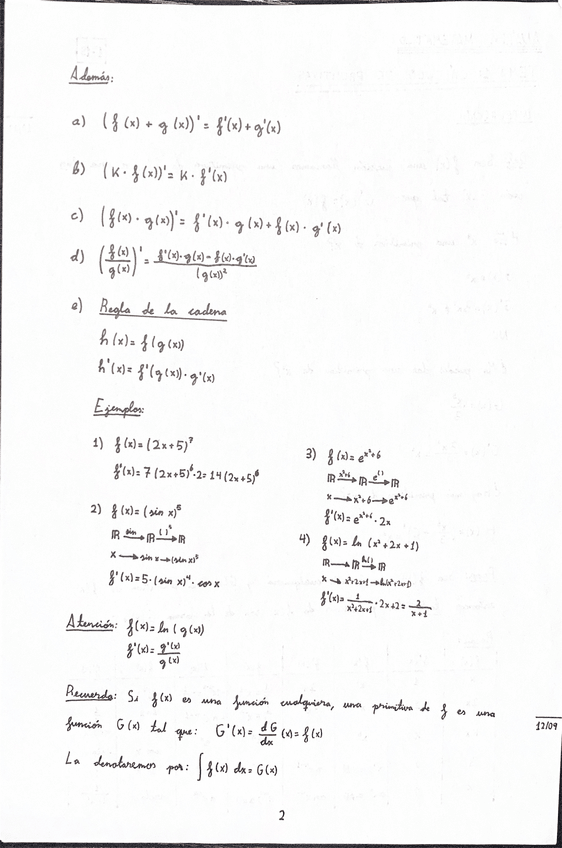 Además:
a) (f(x) + g(x))' = f'(x) + g'(x)
b) (K · f(x))' = K · f'(x)
c) (f(x) · g(x))' = f'(x) · g(x) + f(x) · g'(x)
d) (f(x)/g(x))' = (f'(x)·g(x) - f(x)·g'(x))/(g(x))²
e) Regla de la cadena
h(x) = f(g(x))
h'(x) = f'(g(x)) · g'(x)
Ejemplos:
1) f(x) = (2x+5)⁷
f'(x) = 7(2x+5)⁶·2 = 14(2x+5)⁶
2) f(x) = (sin x)⁵
ℝ —sin→ ℝ —( )⁵→ ℝ
x → sin x → (sin x)⁵
f'(x) = 5·(sin x)⁴ · cos x
3) f(x) = e^(x²+6)
ℝ —x²+6→ ℝ —e^( )→ ℝ
x → x²+6 → e^(x²+6)
f'(x) = e^(x²+6) · 2x
4) f(x) = ln (x² + 2x + 1)
ℝ → ℝ —ln()→ ℝ
x → x²+2x+1 → ln(x²+2x+1)
f'(x) = 1/(x²+2x+1) · 2x+2 = 2/(x+1)
Atención: f(x) = ln(g(x))
f'(x) = g'(x)/g(x)
Recuerdo: Si f(x) es una función cualquiera, una primitiva de f es una
función G(x) tal que: G'(x) = dG/dx (x) = f(x)
12/09
La denotaremos por: ∫ f(x) dx = G(x)
2